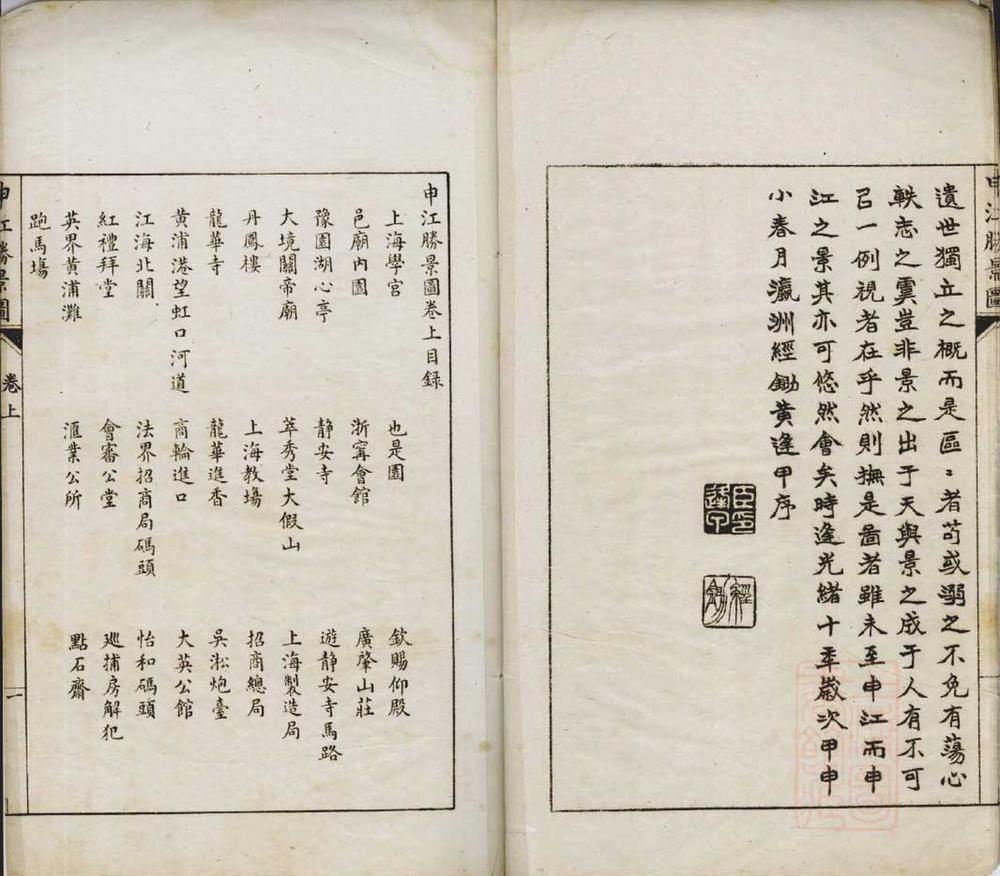 申江勝景圖
遺世獨立之概而是區〻者苟或溺之不免有蕩心
軼志之虞豈非景之出于天與景之成于人有不可
㠯一例視者在乎然則撫是啚者雖未至申江而申
江之景其亦可悠然會矣時逢光緒十年歲次甲申
小春月瀛洲經鋤黃逢甲序
臣印逢甲
經鋤
申江勝景圖卷上目錄
上海學宮 也是園 欽賜仰殿
邑廟內園 浙寧會館 廣肇山莊
豫園湖心亭 静安寺 遊静安寺馬路
大境關帝廟 萃秀堂大假山 上海製造局
丹鳳樓 上海教場 招商總局
龍華寺 龍華進香 吳淞炮臺
黃浦港望虹口河道 商輪進口 大英公館
江海北關 法界招商局碼頭 怡和碼頭
紅禮拜堂 會審公堂 巡捕房解犯
英界黃浦灘 滙業公所 點石齋
跑馬場
申江勝景圖 卷上 一